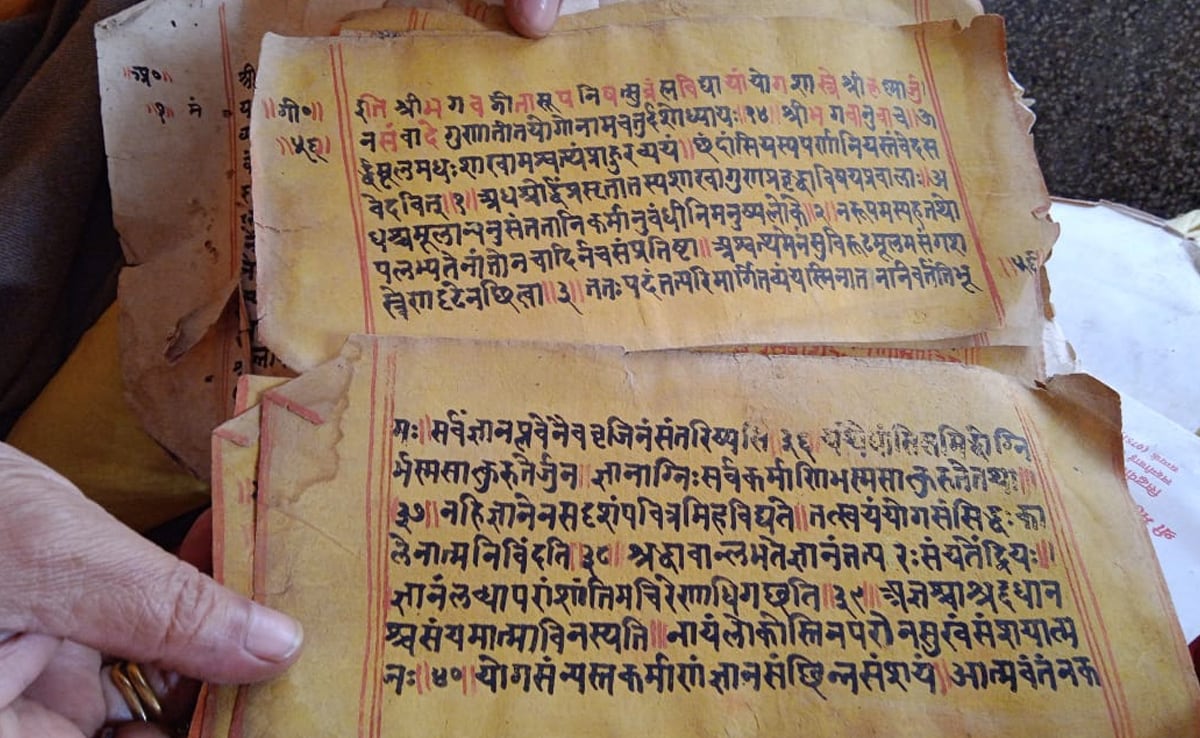 ॥गी०॥
॥५६॥
इति श्रीभगवद्गीतासूपनिषत्सुब्रह्मविद्यायांयोगशास्त्रेश्रीकृष्णार्जु
नसंवादेगुणातीतयोगोनामचतुर्दशोध्यायः॥१४॥श्रीभगवानुवाच॥ऊ
र्द्ध्वमूलमधःशाखामश्वत्थंप्राहुरव्ययं॥छंदांसियस्यपर्णानियस्तंवेदस
वेदवित्॥१॥अधश्चोर्द्ध्वंप्रसृतातस्यशाखागुणाप्रवृद्धाविषयप्रवालाः॥अ
धश्चमूलान्यनुसंततानिकर्मानुबंधीनिमनुष्यलोके॥२॥नरूपमस्येहतथो
पलभ्यतेनांतोनचादिर्नचसंप्रतिष्टा॥अश्वत्थमेनंसुविरूढमूलमसंगश
स्त्रेणदृढेनछित्वा॥३॥ततःपदंतत्परिमार्गितव्यंयस्मिन्गतानानिवर्ततिभू
मः॥सर्वंज्ञानप्लवेनैववृजिनंसंतरिष्यसि॥३६॥यथैधांसिसमिद्धोग्नि
र्भस्मसात्कुरुतेर्जुन॥ज्ञानाग्निःसर्वकर्माणिभस्मसात्कुरुतेतथा॥
३७॥नहिज्ञानेनसदृशंपवित्रमिहविद्यते॥तत्स्वयंयोगसंसिद्धःका
लेनात्मनिविंदति॥३८॥श्रद्धावान्लभतेज्ञानंतत्प रःसंयतेंद्रियः॥
ज्ञानंलब्धापरांशांतिमचिरेणाधिगछति॥३९॥अज्ञश्चाश्रद्दधान
श्चसंयमात्माविनस्यति॥नायंलोकोस्तिनपरोनसुखंसंशयात्म
नः॥४०॥योगसंन्यस्तकर्माणंज्ञानसंछिन्नसंशयं॥आत्मवंतंनक